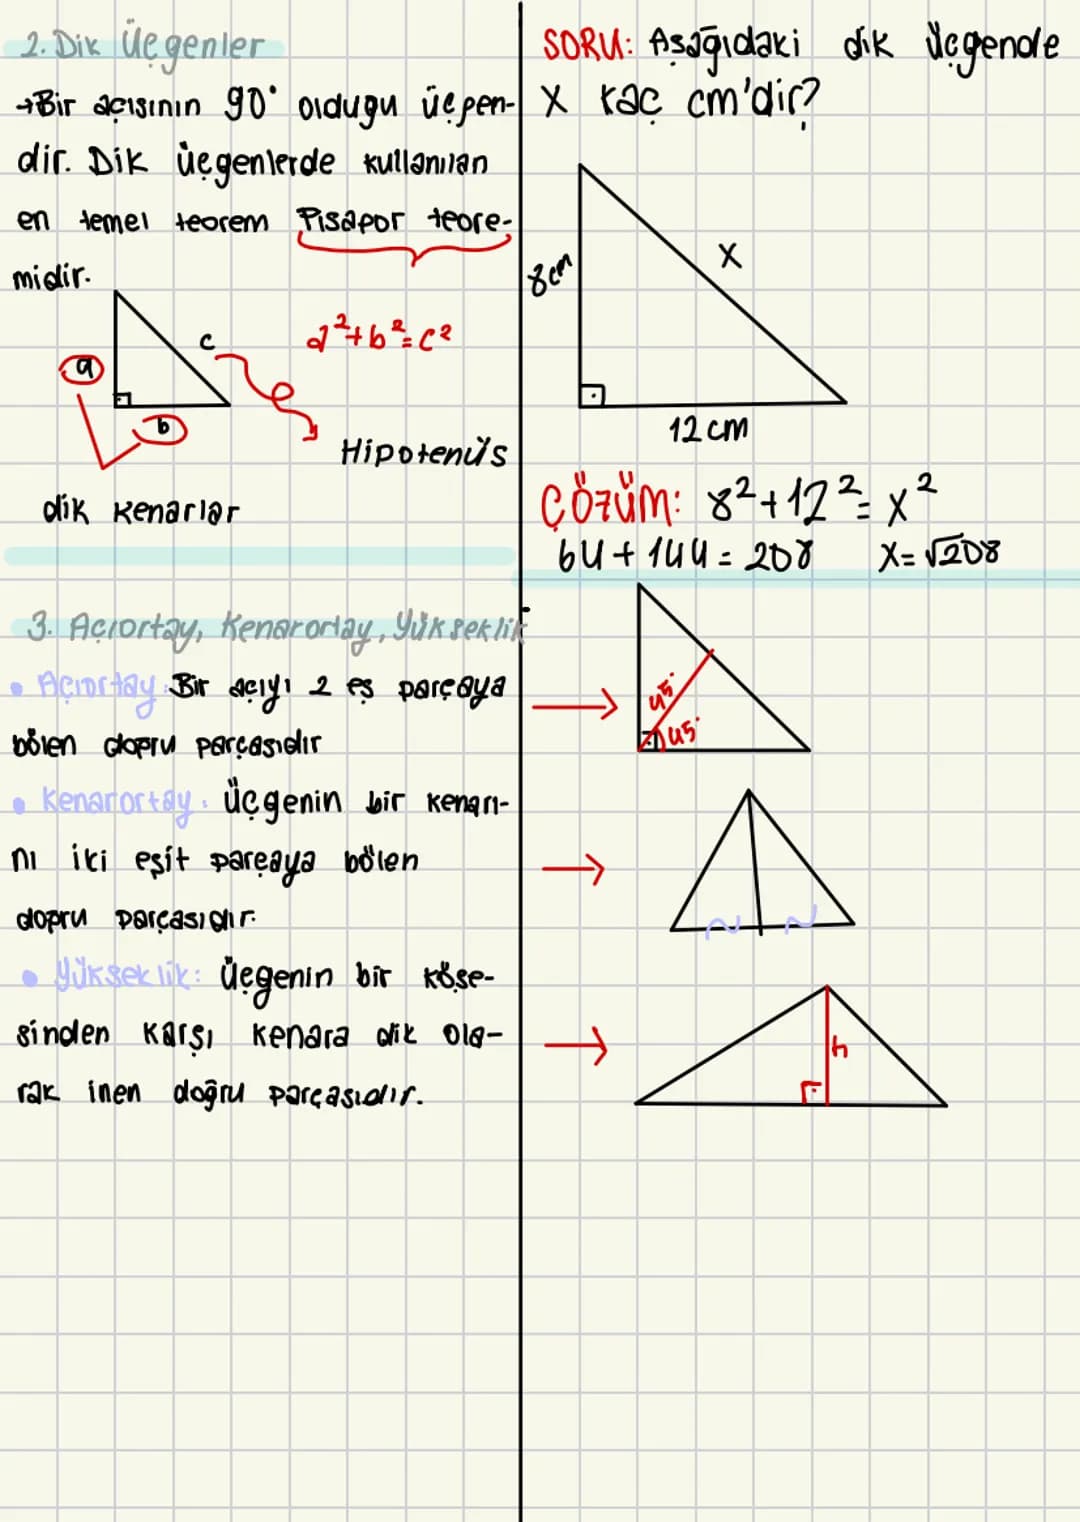 2. Dik Üçgenler
→Bir açısının 90° olduğu üçgen-
dir. Dik üçgenlerde kullanılan
en temel teorem Pisagor teore-
midir.
a
b
c
a²+b²=c²
Hipotenüs
dik kenarlar
3. Açıortay, Kenarortay, Yükseklik
• Açıortay: Bir açıyı 2 eş parçaya
bölen doğru parçasıdır
• Kenarortay: Üçgenin bir kenarı-
nı iki eşit parçaya bölen
doğru parçasıdır.
• Yükseklik: Üçgenin bir köşe-
sinden karşı kenara dik ola-
rak inen doğru parçasıdır.
SORU: Aşağıdaki dik üçgende
x kaç cm'dir?
8cm
x
12 cm
ÇÖZÜM: 8²+12²=x²
64+144=208 x=√208
45°
45°
h